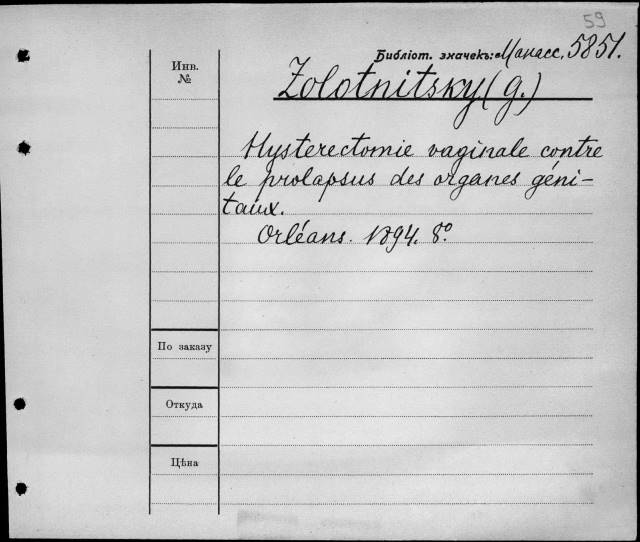 59
Библіот. значекъ: Манасс. 5851.
Инв.
№
Zolotnitsky (G.)
Hysterectomie vaginale contre
le prolapsus des organes géni-
taux.
Orléans. 1894. 8º.
По заказу
Откуда
Цѣна